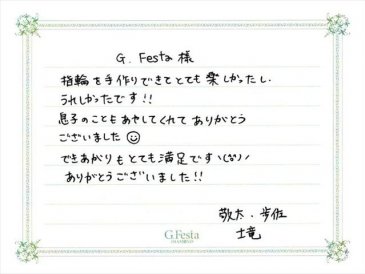 G. Festa 様
指輪を手作りできてとても楽しかったし、
うれしかったです!!
息子のこともあやしてくれてありがとう
ございました☺
できあがりもとても満足ですヽ(^o^)ノ
ありがとうございました!!
敬太・歩佐
士竜
G.Festa
DIAMOND